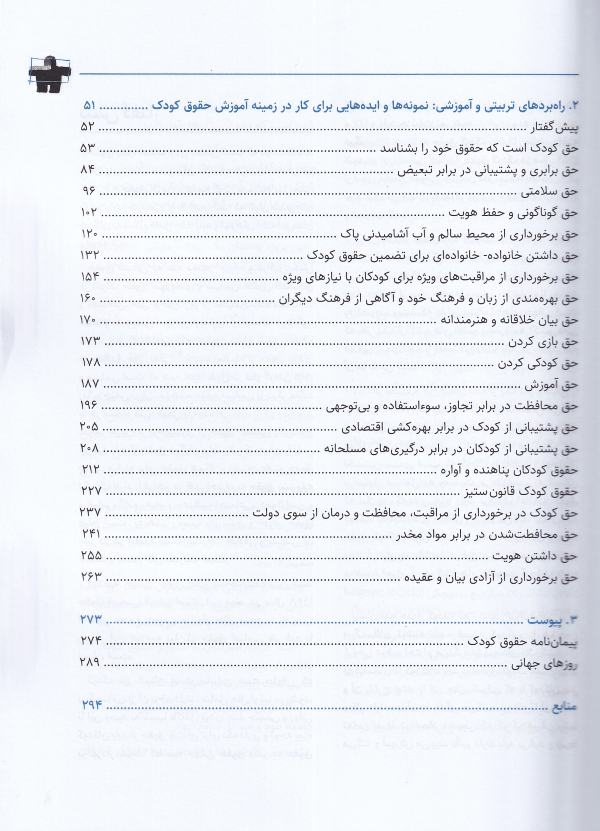 ۲. راه‌بردهای تربیتی و آموزشی: نمونه‌ها و ایده‌هایی برای کار در زمینه آموزش حقوق کودک .............. ۵۱
پیش‌گفتار .............. ۵۲
حق کودک است که حقوق خود را بشناسد .............. ۵۳
حق برابری و پشتیبانی در برابر تبعیض .............. ۸۴
حق سلامتی .............. ۹۶
حق گوناگونی و حفظ هویت .............. ۱۰۲
حق برخورداری از محیط سالم و آب آشامیدنی پاک .............. ۱۲۰
حق داشتن خانواده- خانواده‌ای برای تضمین حقوق کودک .............. ۱۳۲
حق برخورداری از مراقبت‌های ویژه برای کودکان با نیازهای ویژه .............. ۱۵۴
حق بهره‌مندی از زبان و فرهنگ خود و آگاهی از فرهنگ دیگران .............. ۱۶۰
حق بیان خلاقانه و هنرمندانه .............. ۱۷۰
حق بازی کردن .............. ۱۷۳
حق کودکی کردن .............. ۱۷۸
حق آموزش .............. ۱۸۷
حق محافظت در برابر تجاوز، سوءاستفاده و بی‌توجهی .............. ۱۹۶
حق پشتیبانی از کودک در برابر بهره‌کشی اقتصادی .............. ۲۰۵
حق پشتیبانی از کودکان در برابر درگیری‌های مسلحانه .............. ۲۰۸
حقوق کودکان پناهنده و آواره .............. ۲۱۲
حقوق کودک قانون‌ستیز .............. ۲۲۷
حق کودک در برخورداری از مراقبت، محافظت و درمان از سوی دولت .............. ۲۳۷
حق محافطت‌شدن در برابر مواد مخدر .............. ۲۴۱
حق داشتن هویت .............. ۲۵۵
حق برخورداری از آزادی بیان و عقیده .............. ۲۶۳
۳. پیوست .............. ۲۷۳
پیمان‌نامه حقوق کودک .............. ۲۷۴
روزهای جهانی .............. ۲۸۹
منابع .............. ۲۹۴